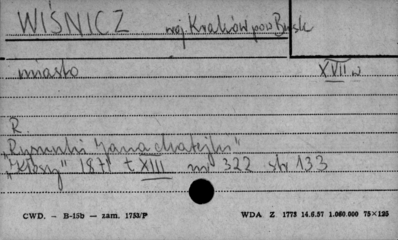 WIŚNICZ woj. Kraków pow. Bńsk
miasto XVII w
R.
"Rysunki Jana Matejki"
"Kłosy" 1871 t XIII nr 322 str 133
CWD. — B-15b — zam. 1753/P WDA. Z 1773 14.6.57 1.060.000 75×125